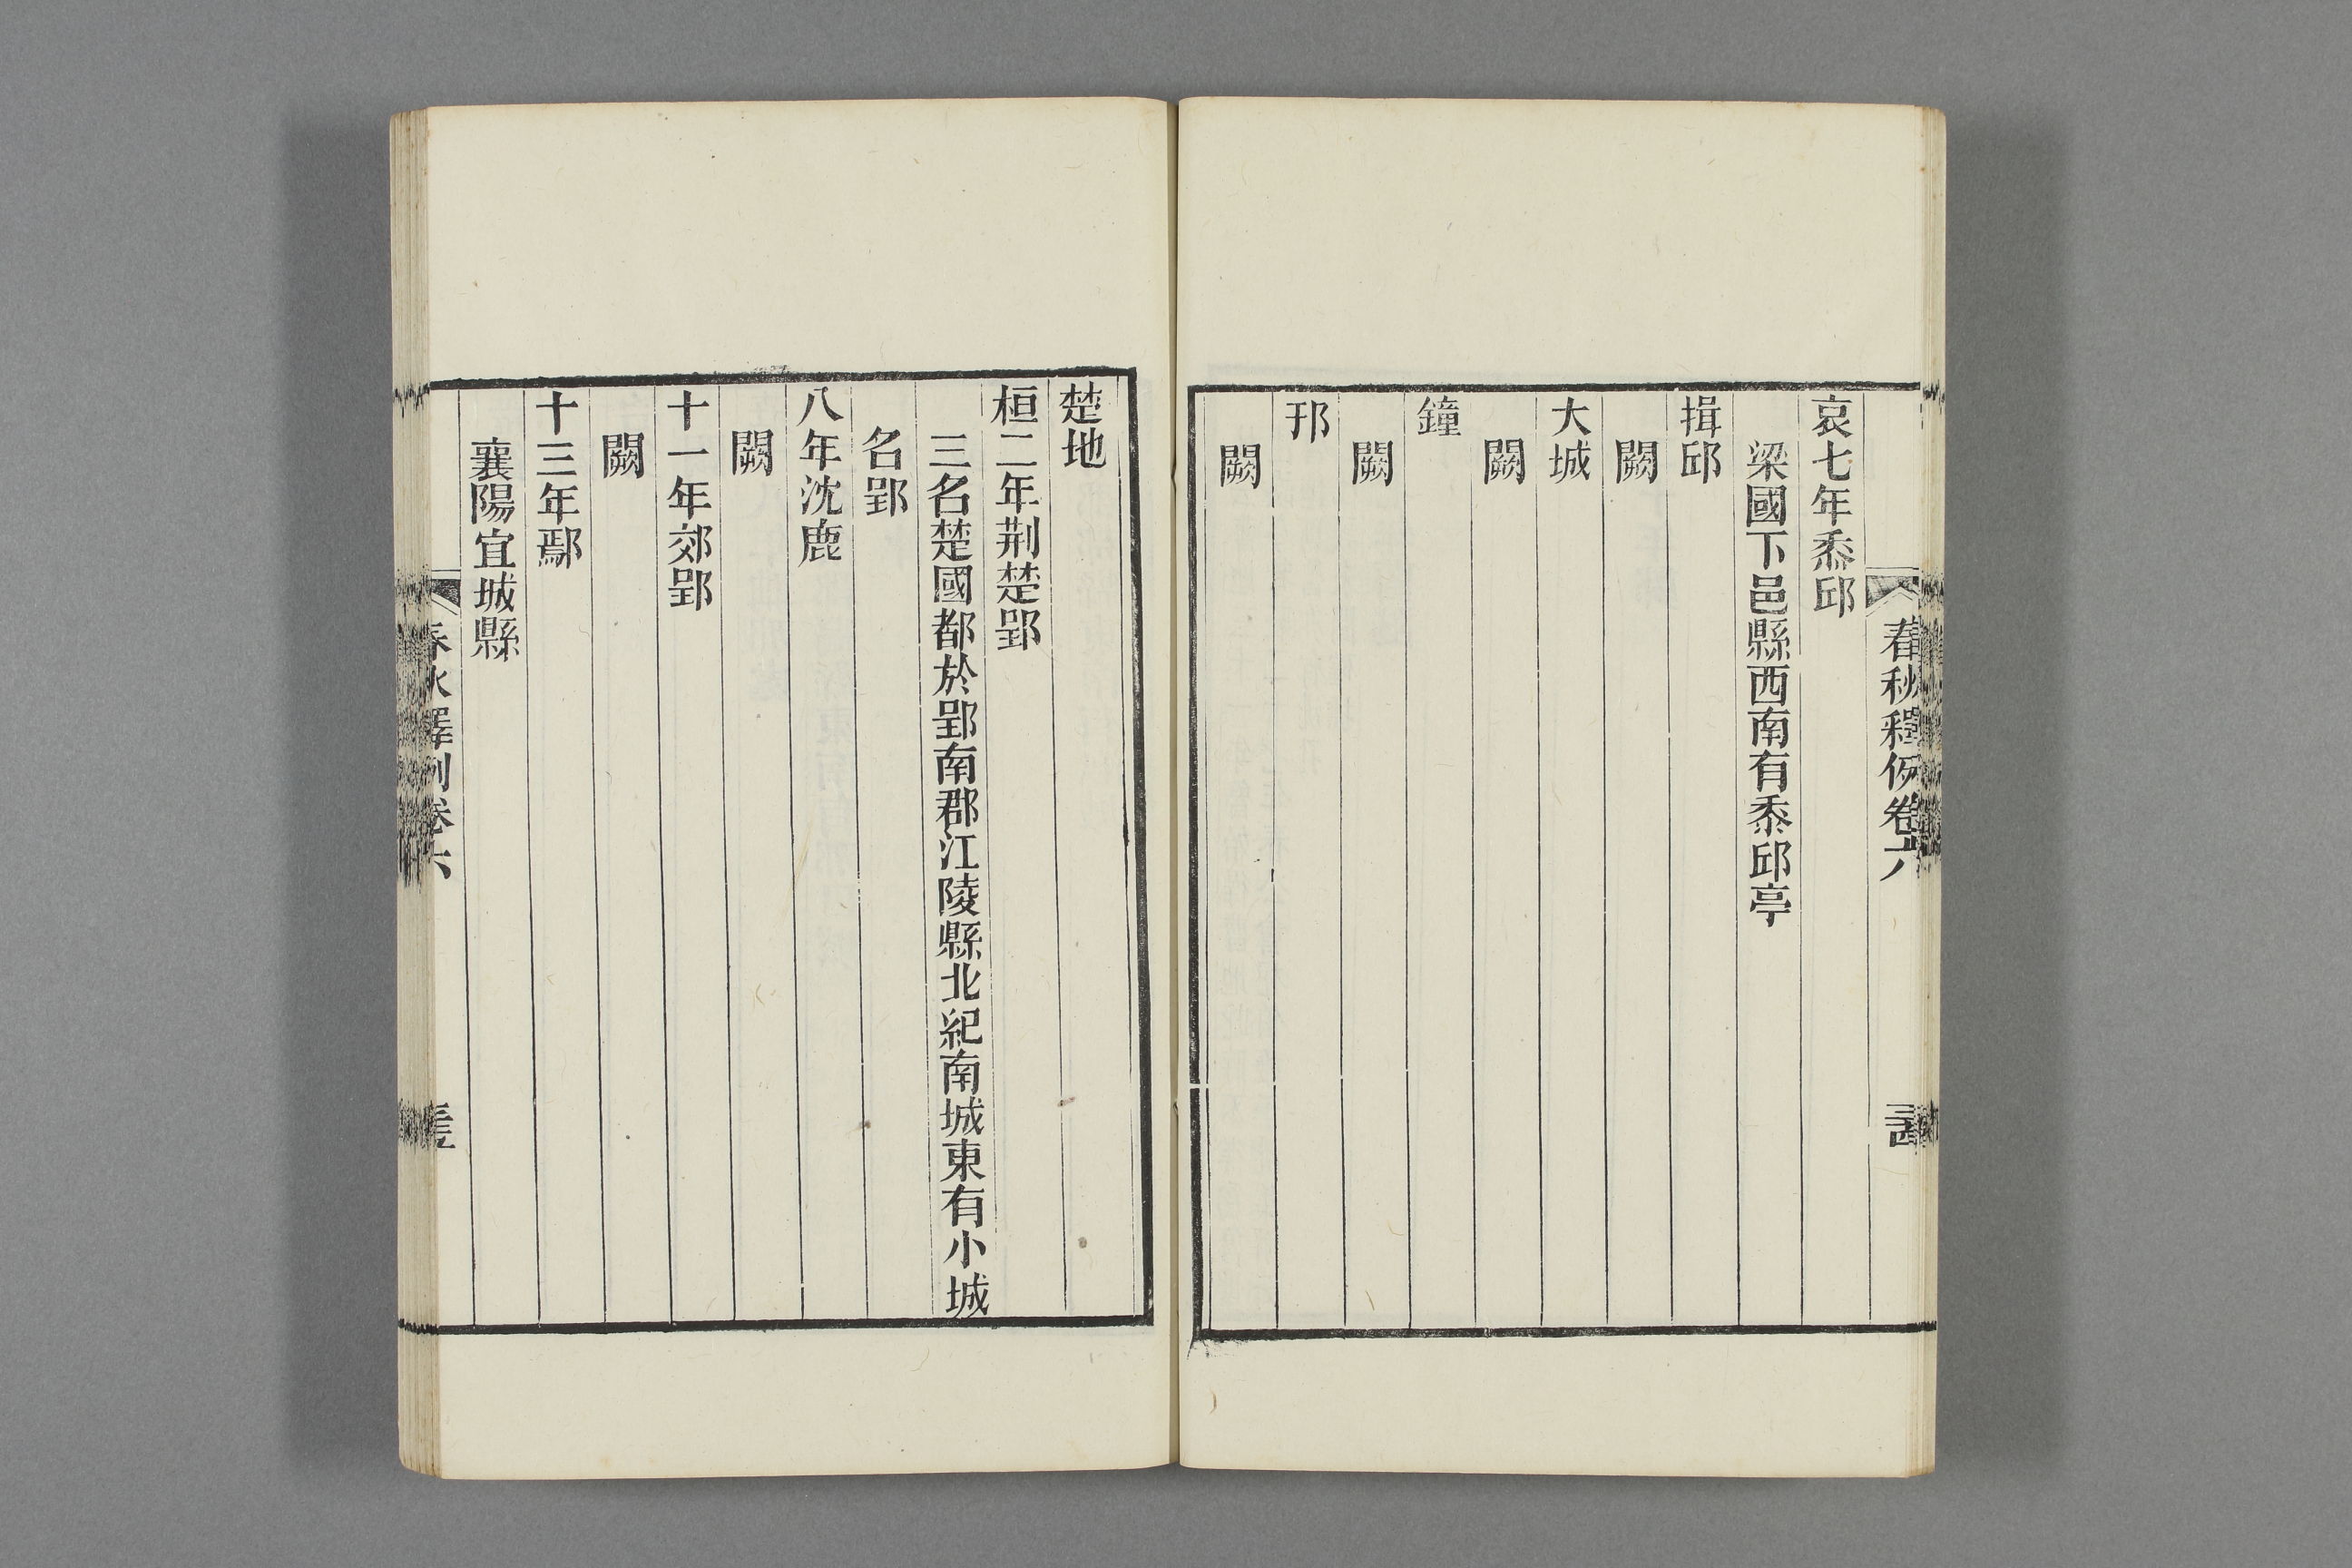 春秋釋例卷六
哀七年黍邱
梁國下邑縣西南有黍邱亭
揖邱
闕
大城
闕
鐘
闕
邘
闕
楚地
桓二年荆楚郢
三名楚國都於郢南郡江陵縣北紀南城東有小城
名郢
八年沈鹿
闕
十一年郊郢
闕
十三年鄢
襄陽宜城縣
春秋釋例卷六